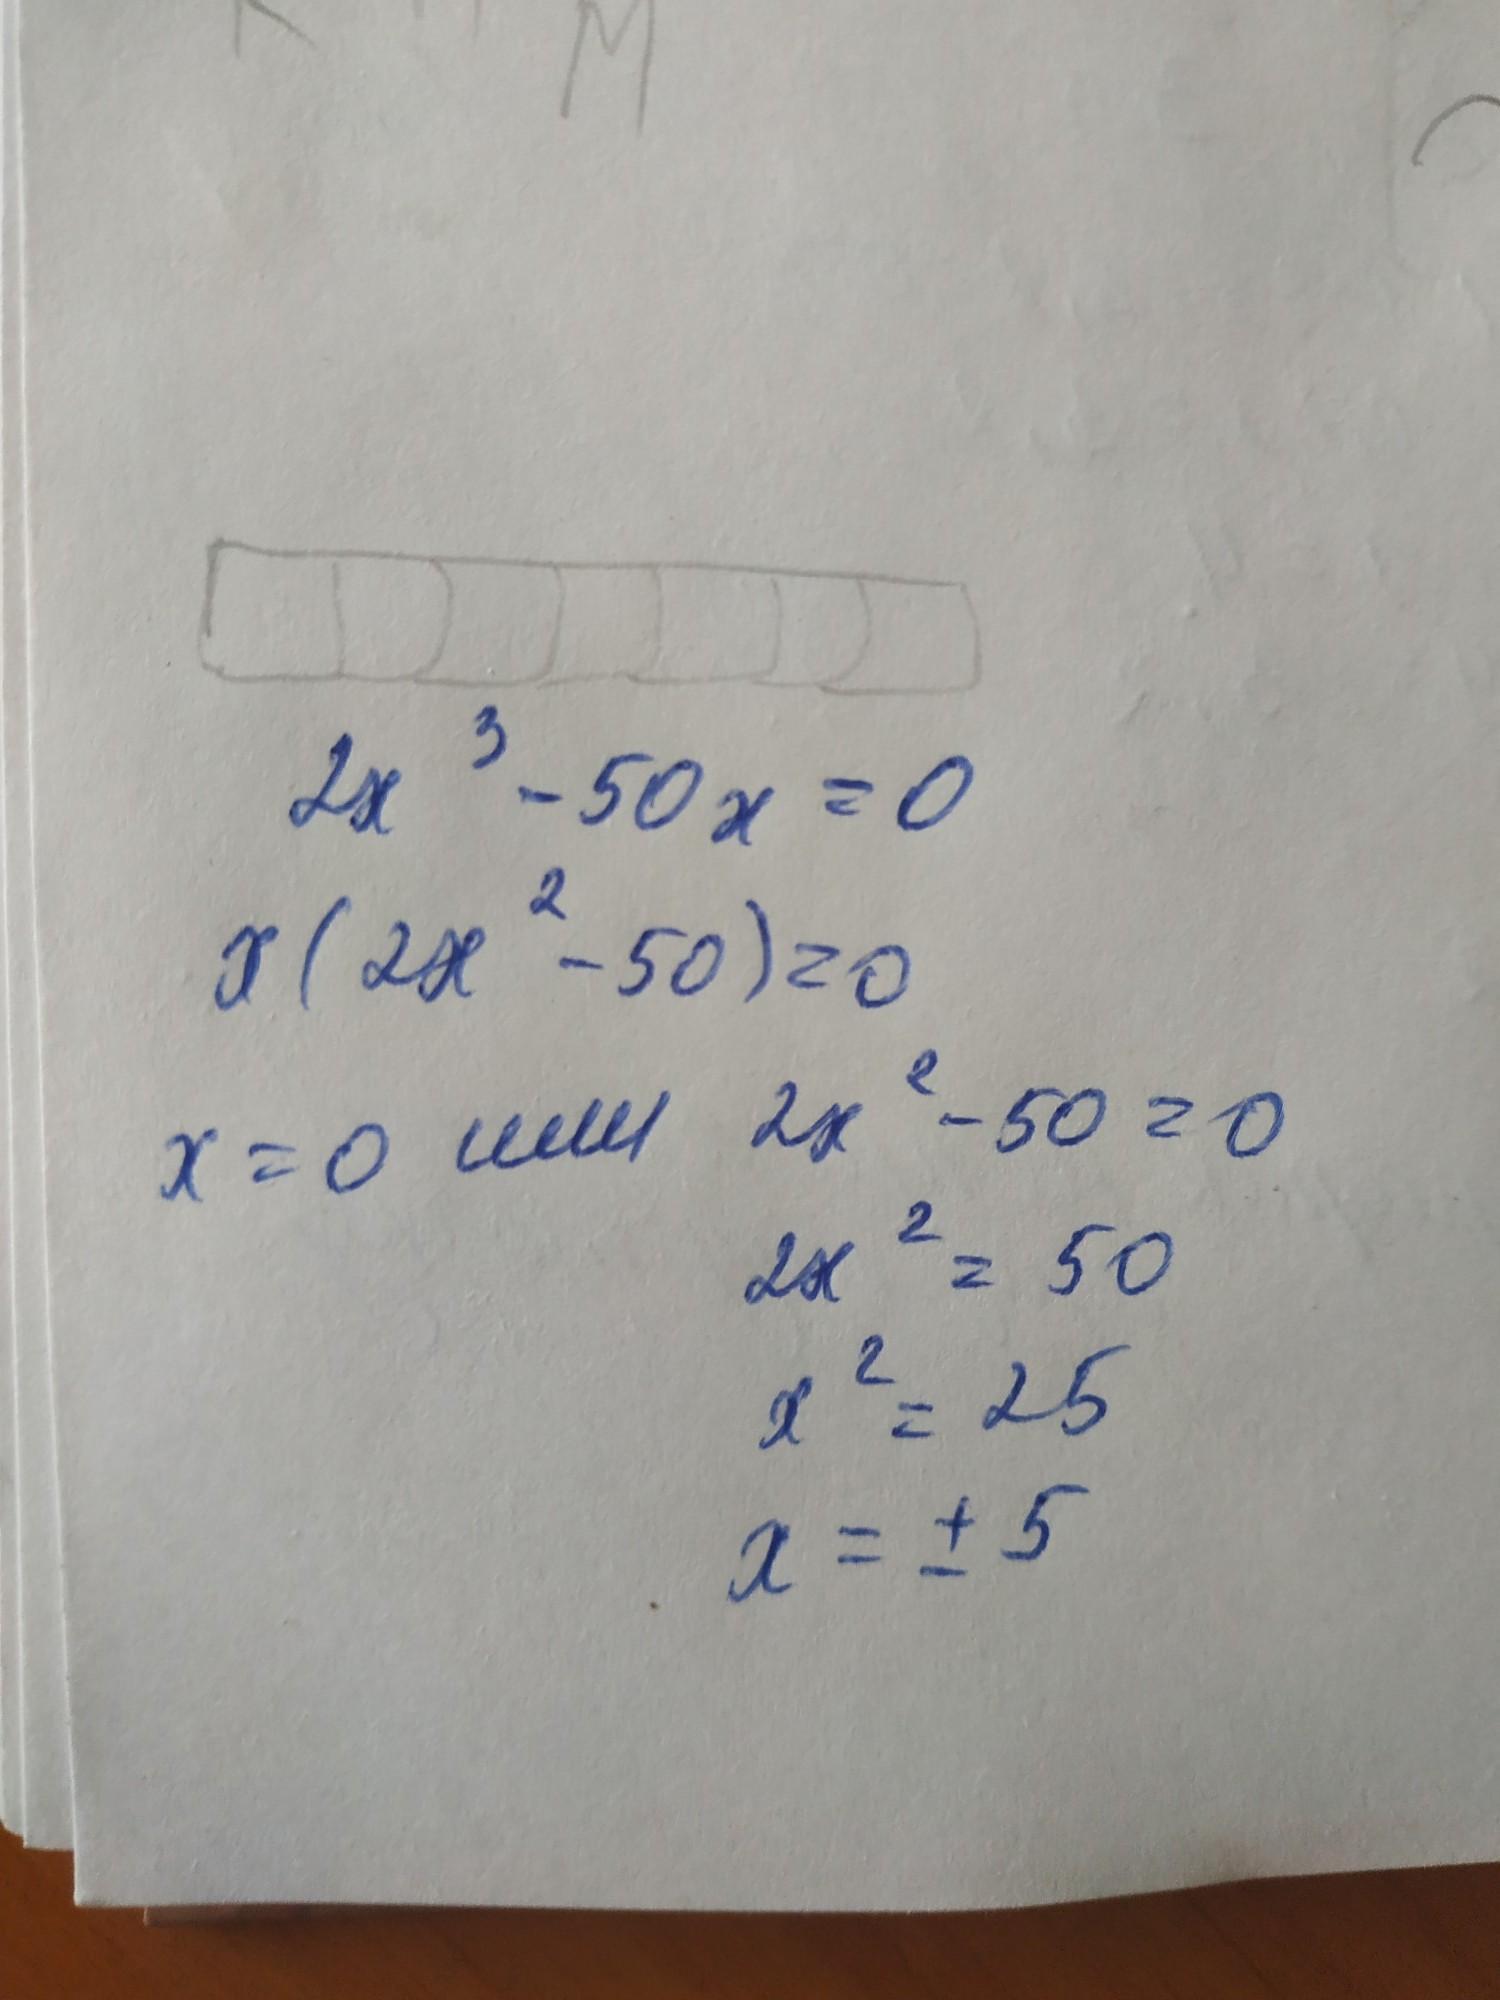 M
2x³ - 50x = 0
x(2x² - 50) = 0
x = 0 или 2x² - 50 = 0
2x² = 50
x² = 25
x = ± 5